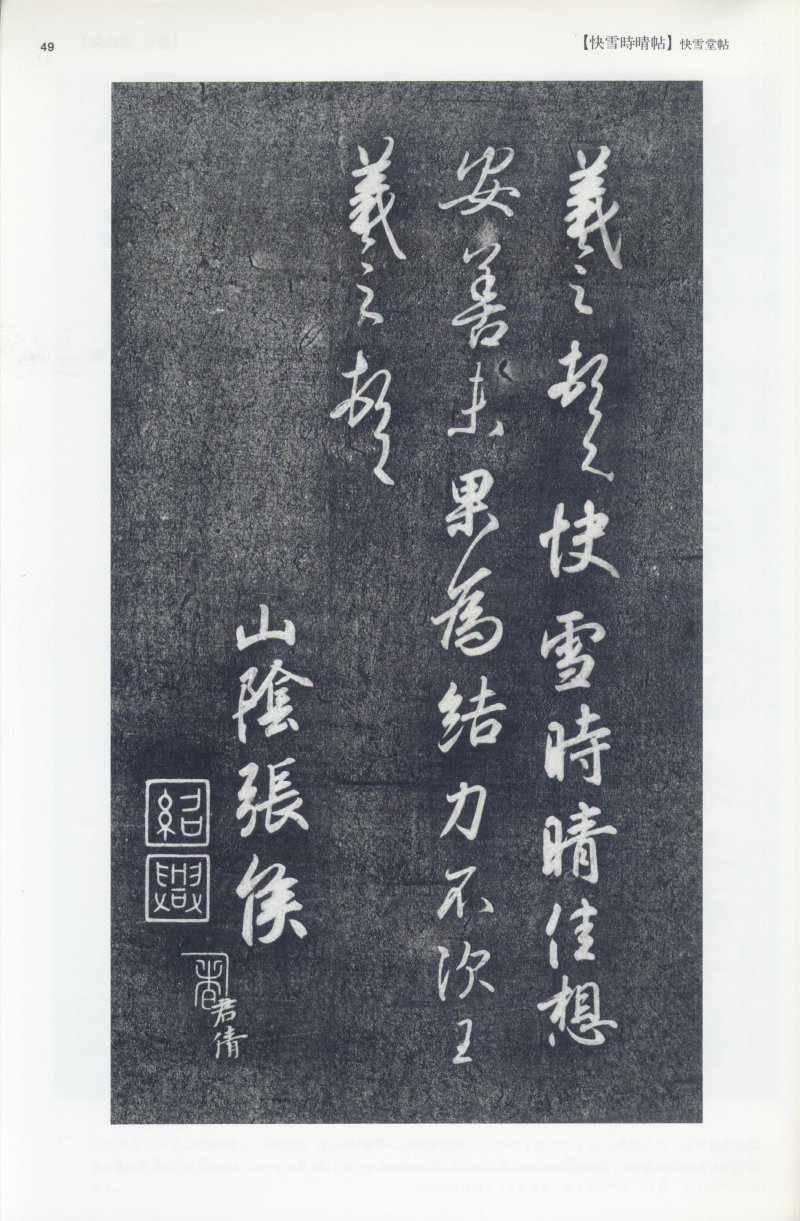 49
【快雪時晴帖】快雪堂帖
羲之頓首快雪時晴佳想
安善未果為結力不次王
羲之頓首
山陰張侯
紹
興
君倩